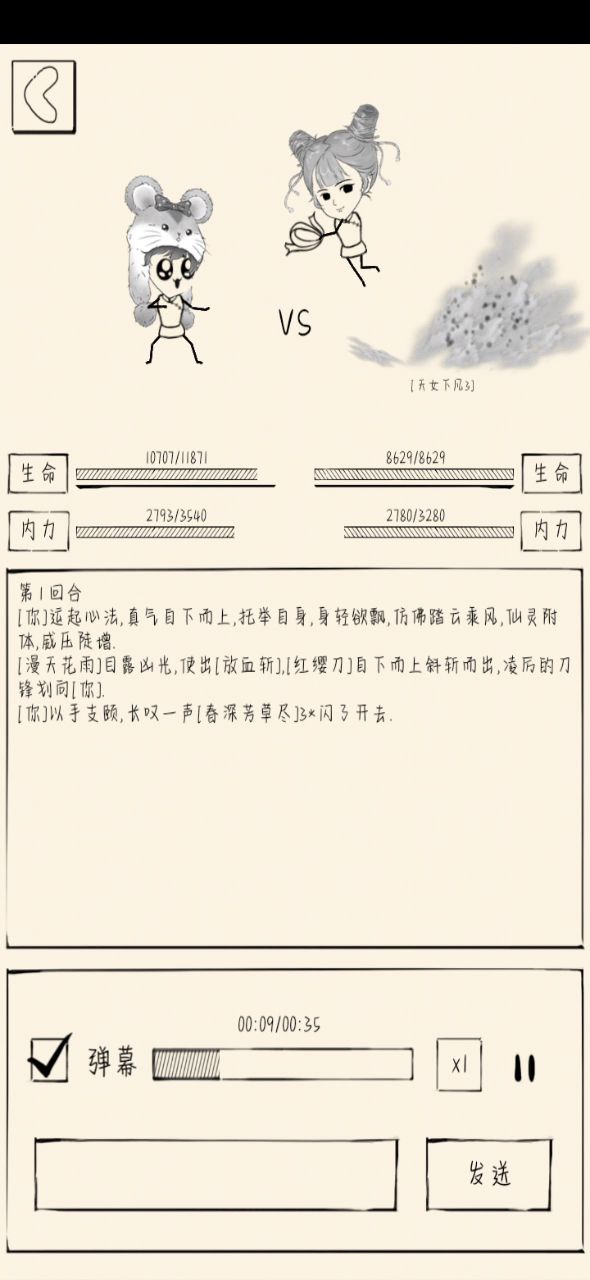 VS
[天女下凡3]
生命
10707/11871
8629/8629
生命
内力
2793/3540
2780/3280
内力
第1回合
[你]运起心法,真气自下而上,托举自身,身轻欲飘,仿佛踏云乘风,仙灵附
体,威压陡增.
[漫天花雨]目露凶光,使出[放血斩],[红缨刀]自下而上斜斩而出,凌厉的刀
锋划向[你].
[你]以手支颐,长叹一声[春深芳草尽]3*闪了开去.
00:09/00:35
弹幕
x1
发送